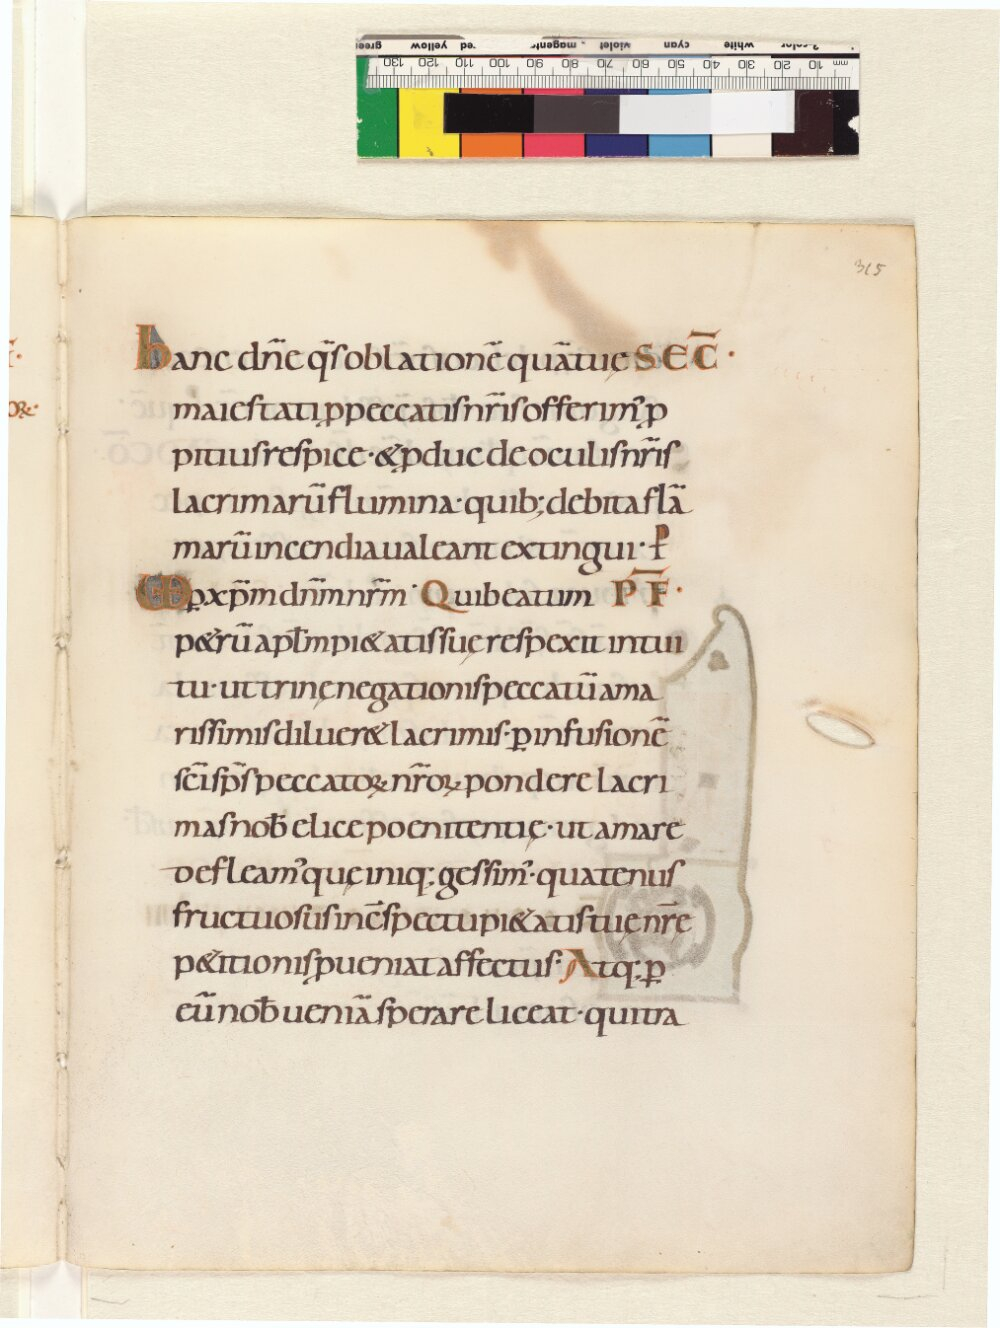 315
hanc dn̄e q̄s oblationē quā tuę SEC̄·
maiestati p̱ peccatis nr̄is offerim᷒ p̱
pitius respice· & p̱duc de oculis nr̄is
lacrimarū flumina· quib; debita flā
marū incendia ualeant extingui· P̵
p̱ xp̄m dn̄m nr̄m· Qui beatum P̄F̄·
p&rū apl̄m pi&atis suę respexit intui
tu· ut trinę negationis peccatū ama
rissimis diluer& lacrimis· p̱ infusionē
sc̄i sp̄s peccatoꝝ nr̄oꝝ pondere lacri
mas nob̄ elice poenitentię· ut amare
defleam᷒ quę iniq; gessim᷒· quatenus
fructuosus in c̄spectu pi&atis tuę nr̄e
p&itionis p̱ueniat affectus· Atq; p̱
eū nob̄ ueniā sperare liceat· qui tra